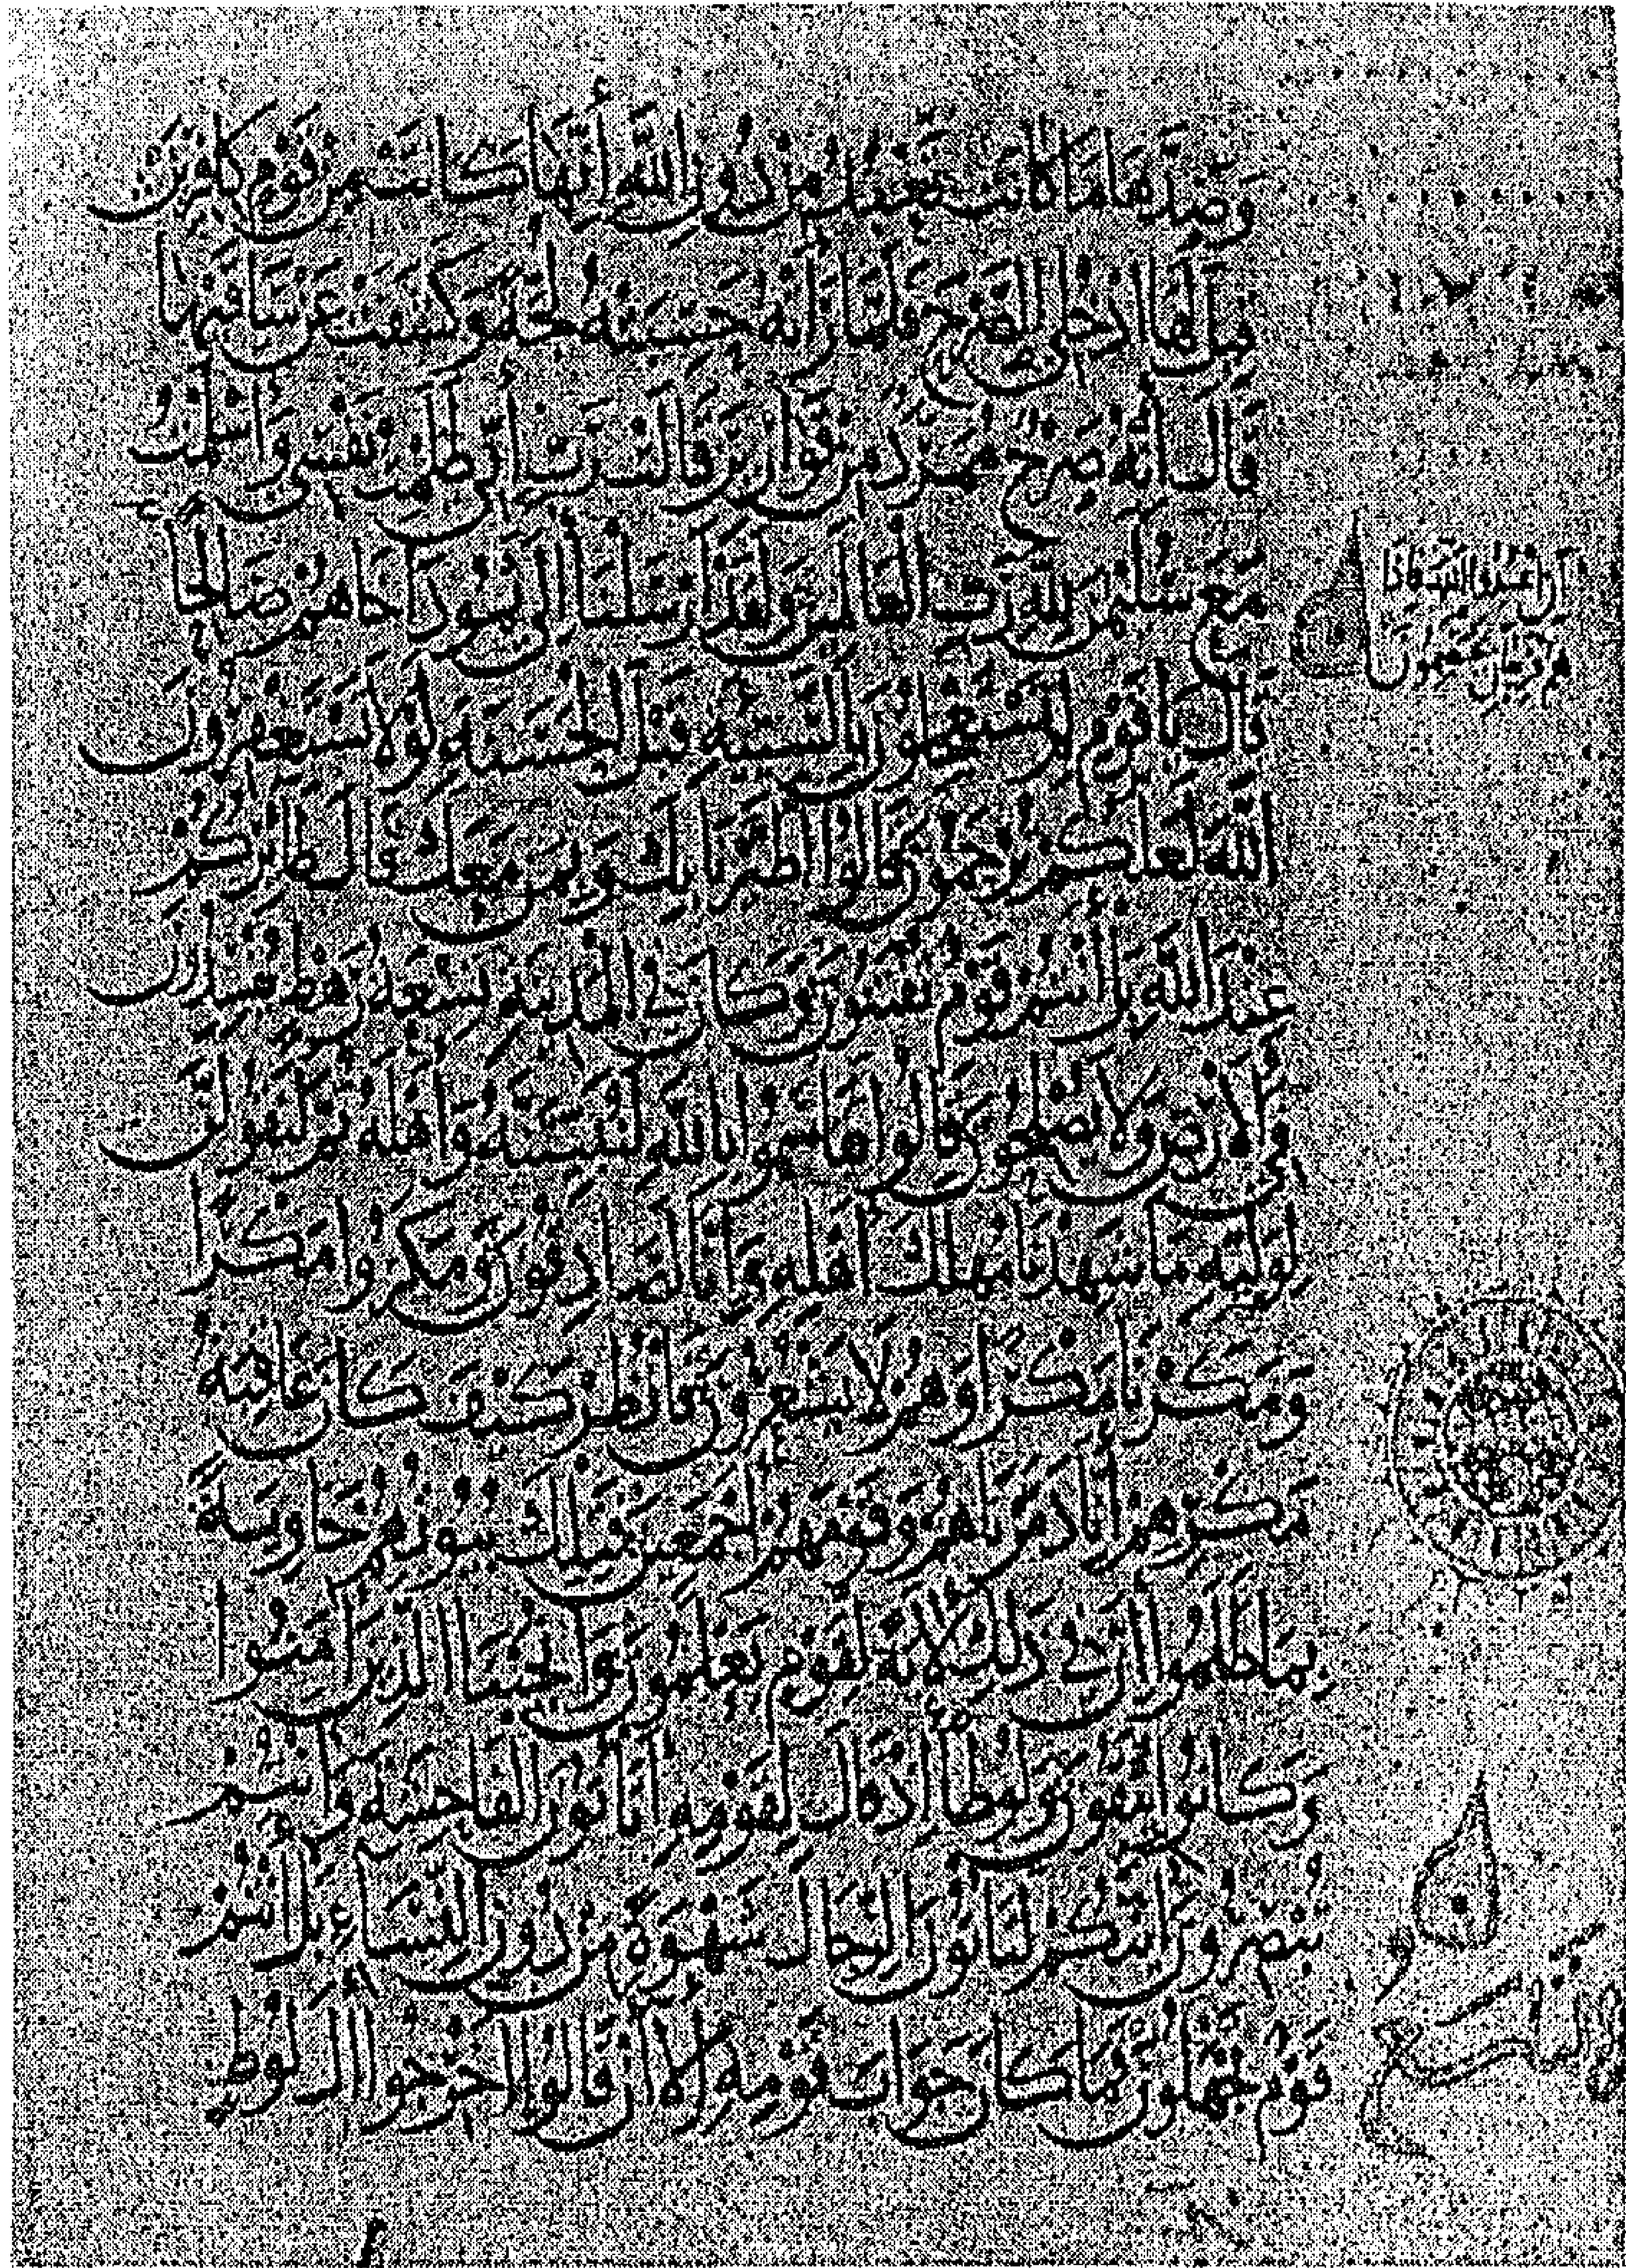 وَصَدَّهَا مَا كَانَت تَّعْبُدُ مِن دُونِ اللَّهِ أَنَّهَا كَانَتْ مِن قَوْمٍ كَافِرِينَ
قِيلَ لَهَا ادْخُلِي الصَّرْحَ فَلَمَّا رَأَتْهُ حَسِبَتْهُ لُجَّةً وَكَشَفَتْ عَن سَاقَيْهَا
قَالَ إِنَّهُ صَرْحٌ مُمَرَّدٌ مِن قَوَارِيرَ قَالَتْ رَبِّ إِنِّي ظَلَمْتُ نَفْسِي وَأَسْلَمْتُ
مَعَ سُلَيْمَنَ لِلَّهِ رَبِّ الْعَالَمِينَ وَلَقَدْ أَرْسَلْنَا إِلَى ثَمُودَ أَخَاهُمْ صَالِحًا
قَالَ يَا قَوْمِ لِمَ تَسْتَعْجِلُونَ بِالسَّيِّئَةِ قَبْلَ الْحَسَنَةِ لَوْلَا تَسْتَغْفِرُونَ
اللَّهَ لَعَلَّكُمْ تُرْحَمُونَ قَالُوا اطَّيَّرْنَا بِكَ وَبِمَن مَعَكَ قَالَ طَائِرُكُمْ
عِندَ اللَّهِ بَلْ أَنتُمْ قَوْمٌ تُفْتَنُونَ وَكَانَ فِي الْمَدِينَةِ تِسْعَةُ رَهْطٍ يُفْسِدُونَ
فِي الْأَرْضِ وَلَا يُصْلِحُونَ قَالُوا تَقَاسَمُوا بِاللَّهِ لَنُبَيِّتَنَّهُ وَأَهْلَهُ ثُمَّ لَنَقُولَنَّ
لِوَلِيِّهِ مَا شَهِدْنَا مَهْلِكَ أَهْلِهِ وَإِنَّا لَصَادِقُونَ وَمَكَرُوا مَكْرًا
وَمَكَرْنَا مَكْرًا وَهُمْ لَا يَشْعُرُونَ فَانْظُرْ كَيْفَ كَانَ عَاقِبَةُ
مَكْرِهِمْ أَنَّا دَمَّرْنَاهُمْ وَقَوْمَهُمْ أَجْمَعِينَ فَتِلْكَ بُيُوتُهُمْ خَاوِيَةً
بِمَا ظَلَمُوا إِنَّ فِي ذَلِكَ لَآيَةً لِقَوْمٍ يَعْلَمُونَ وَأَنْجَيْنَا الَّذِينَ آمَنُوا
وَكَانُوا يَتَّقُونَ وَلُوطًا إِذْ قَالَ لِقَوْمِهِ أَتَأْتُونَ الْفَاحِشَةَ وَأَنتُمْ
تُبْصِرُونَ أَئِنَّكُمْ لَتَأْتُونَ الرِّجَالَ شَهْوَةً مِن دُونِ النِّسَاءِ بَلْ أَنتُمْ
قَوْمٌ تَجْهَلُونَ فَمَا كَانَ جَوَابَ قَوْمِهِ إِلَّا أَن قَالُوا أَخْرِجُوا آلَ لُوطٍ